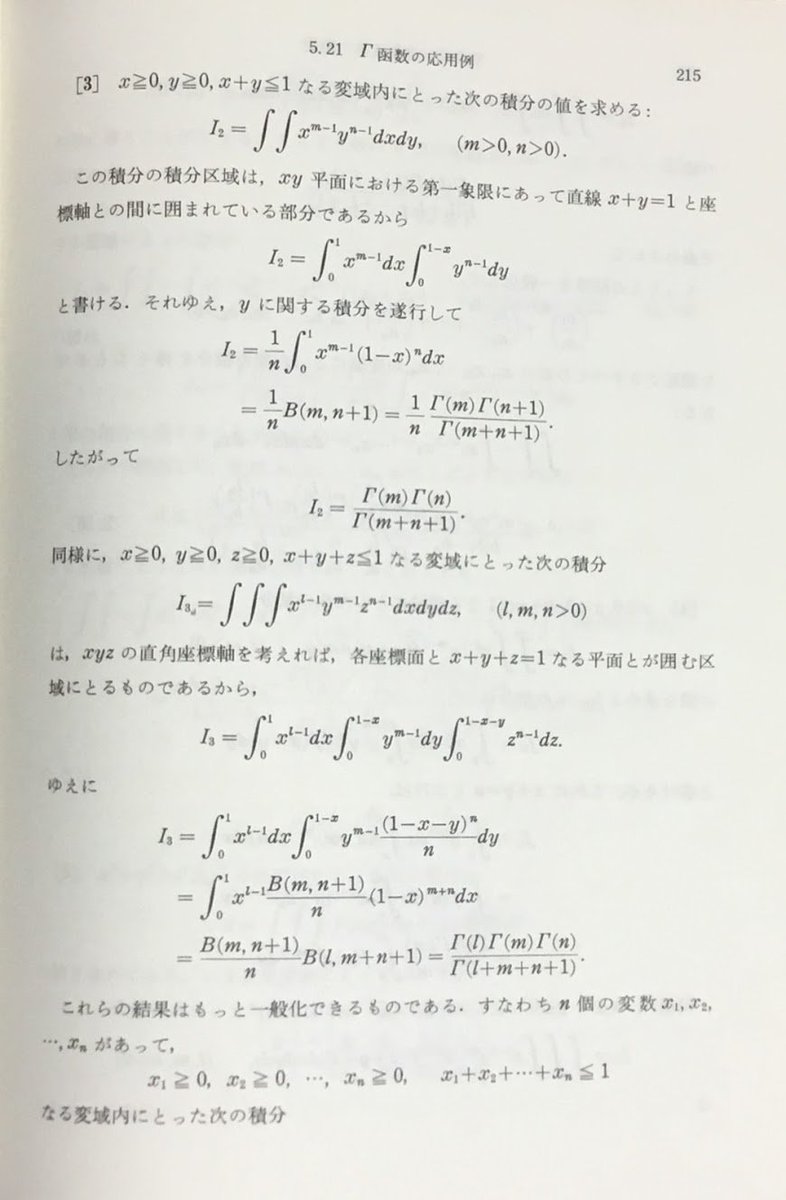 5.21 Γ函数の応用例
215
[3] x≧0, y≧0, x+y≦1 なる変域内にとった次の積分の値を求める:
I₂ = ∫∫xᵐ⁻¹yⁿ⁻¹dxdy, (m>0, n>0).
この積分の積分区域は, xy 平面における第一象限にあって直線 x+y=1 と座
標軸との間に囲まれている部分であるから
I₂ = ∫₀¹ xᵐ⁻¹dx ∫₀¹⁻ˣ yⁿ⁻¹dy
と書ける. それゆえ, y に関する積分を遂行して
I₂ = 1/n ∫₀¹ xᵐ⁻¹(1-x)ⁿdx
= 1/n B(m, n+1) = 1/n Γ(m)Γ(n+1)/Γ(m+n+1).
したがって
I₂ = Γ(m)Γ(n)/Γ(m+n+1).
同様に, x≧0, y≧0, z≧0, x+y+z≦1 なる変域にとった次の積分
I₃ = ∫∫∫xˡ⁻¹yᵐ⁻¹zⁿ⁻¹dxdydz, (l, m, n>0)
は, xyz の直角座標軸を考えれば, 各座標面と x+y+z=1 なる平面とが囲む区
域にとるものであるから,
I₃ = ∫₀¹ xˡ⁻¹dx ∫₀¹⁻ˣ yᵐ⁻¹dy ∫₀¹⁻ˣ⁻ʸ zⁿ⁻¹dz.
ゆえに
I₃ = ∫₀¹ xˡ⁻¹dx ∫₀¹⁻ˣ yᵐ⁻¹ (1-x-y)ⁿ/n dy
= ∫₀¹ xˡ⁻¹ B(m, n+1)/n (1-x)ᵐ⁺ⁿdx
= B(m, n+1)/n B(l, m+n+1) = Γ(l)Γ(m)Γ(n)/Γ(l+m+n+1).
これらの結果はもっと一般化できるものである. すなわち n 個の変数 x₁, x₂,
…, xₙ があって,
x₁ ≧ 0, x₂ ≧ 0, …, xₙ ≧ 0, x₁+x₂+…+xₙ ≦ 1
なる変域内にとった次の積分